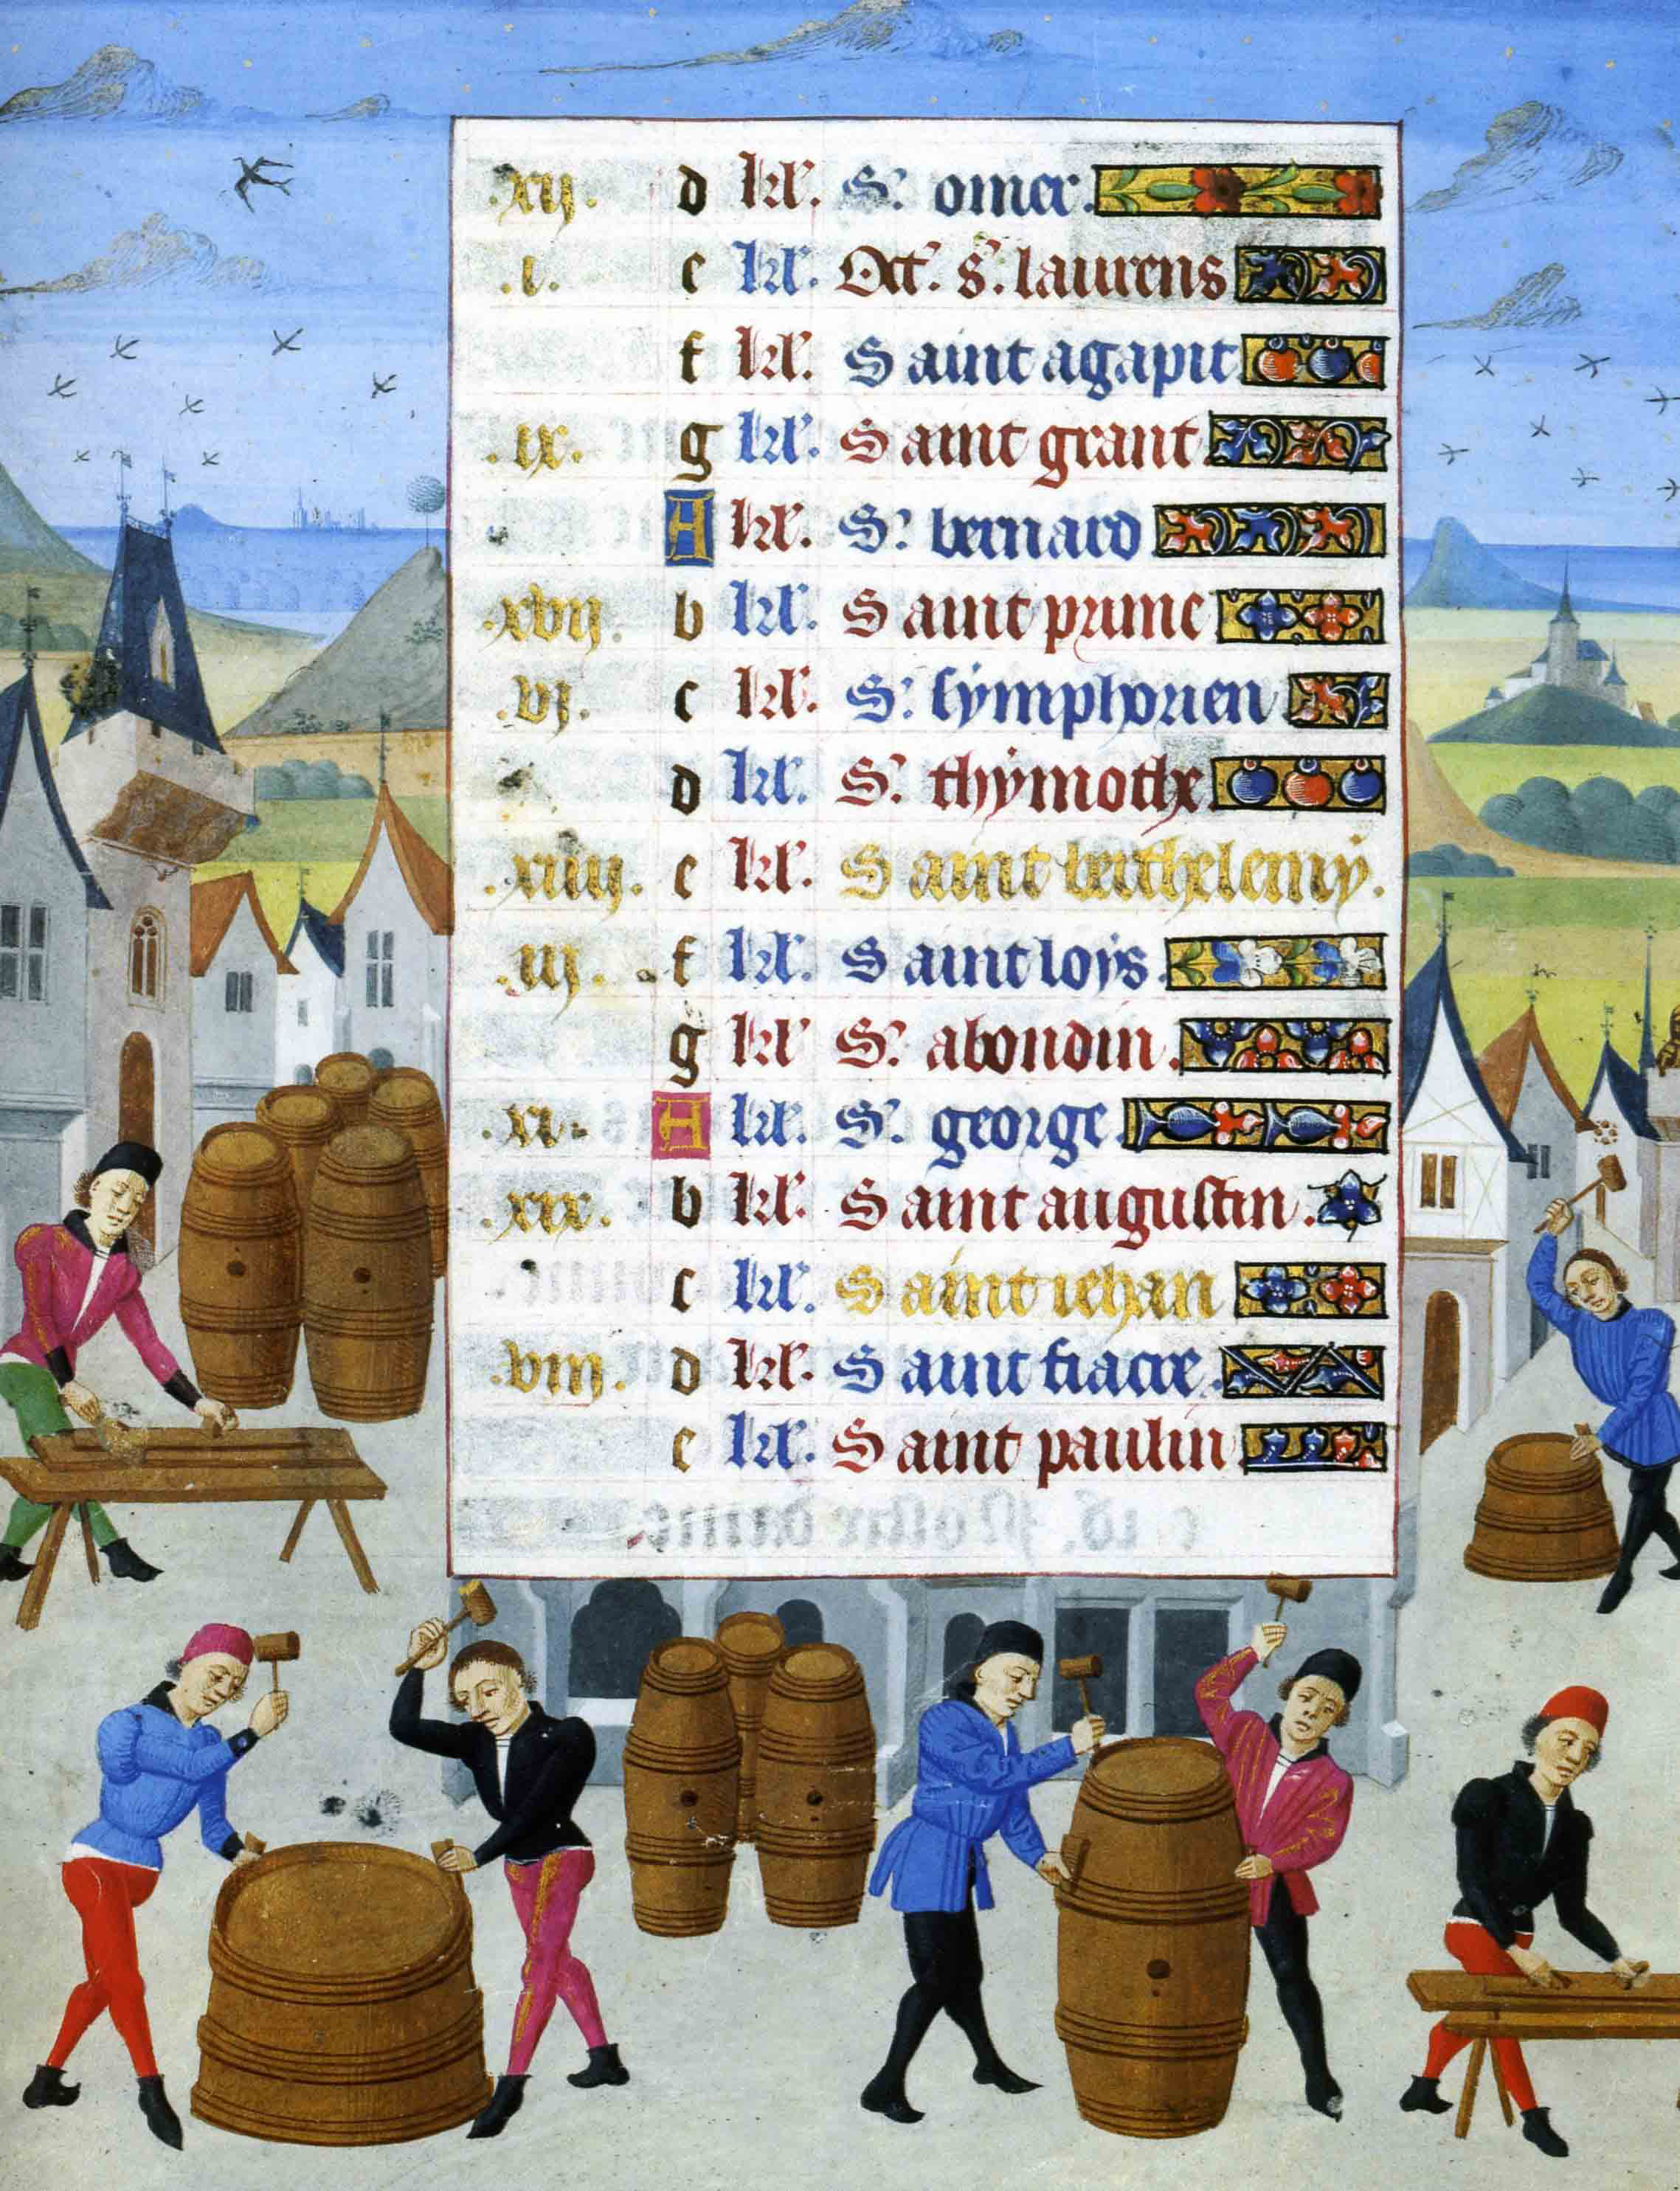 .xij. d kl'. S' omer.
.i. e kl'. Oct'. s'. laurens
f kl'. Saint agapit
.ix. g kl'. Saint grant
A kl'. S' bernard
.xvij. b kl'. Saint prime
.vj. c kl'. S' symphorien
d kl'. S' thymothe.
.xiiij. e kl'. Saint berthelemy.
.iij. f kl'. Saint loys.
g kl' S' abondin.
.xi. A kl'. S' george.
.xix. b kl'. Saint augustin.
c kl'. Saint iehan
.viij. d kl'. Saint fiacre.
e kl'. Saint paulin